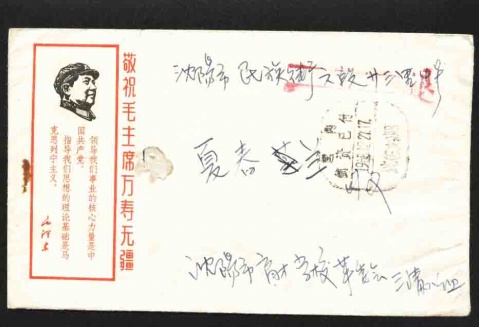 敬祝毛主席万寿无疆
领导我们事业的核心力量是中
国共产党。
指导我们思想的理论基础是马
克思列宁主义。
毛泽东
沈阳市 民族街 六段 廿三
夏春兰
邮资已付
沈阳市育才学校革委会